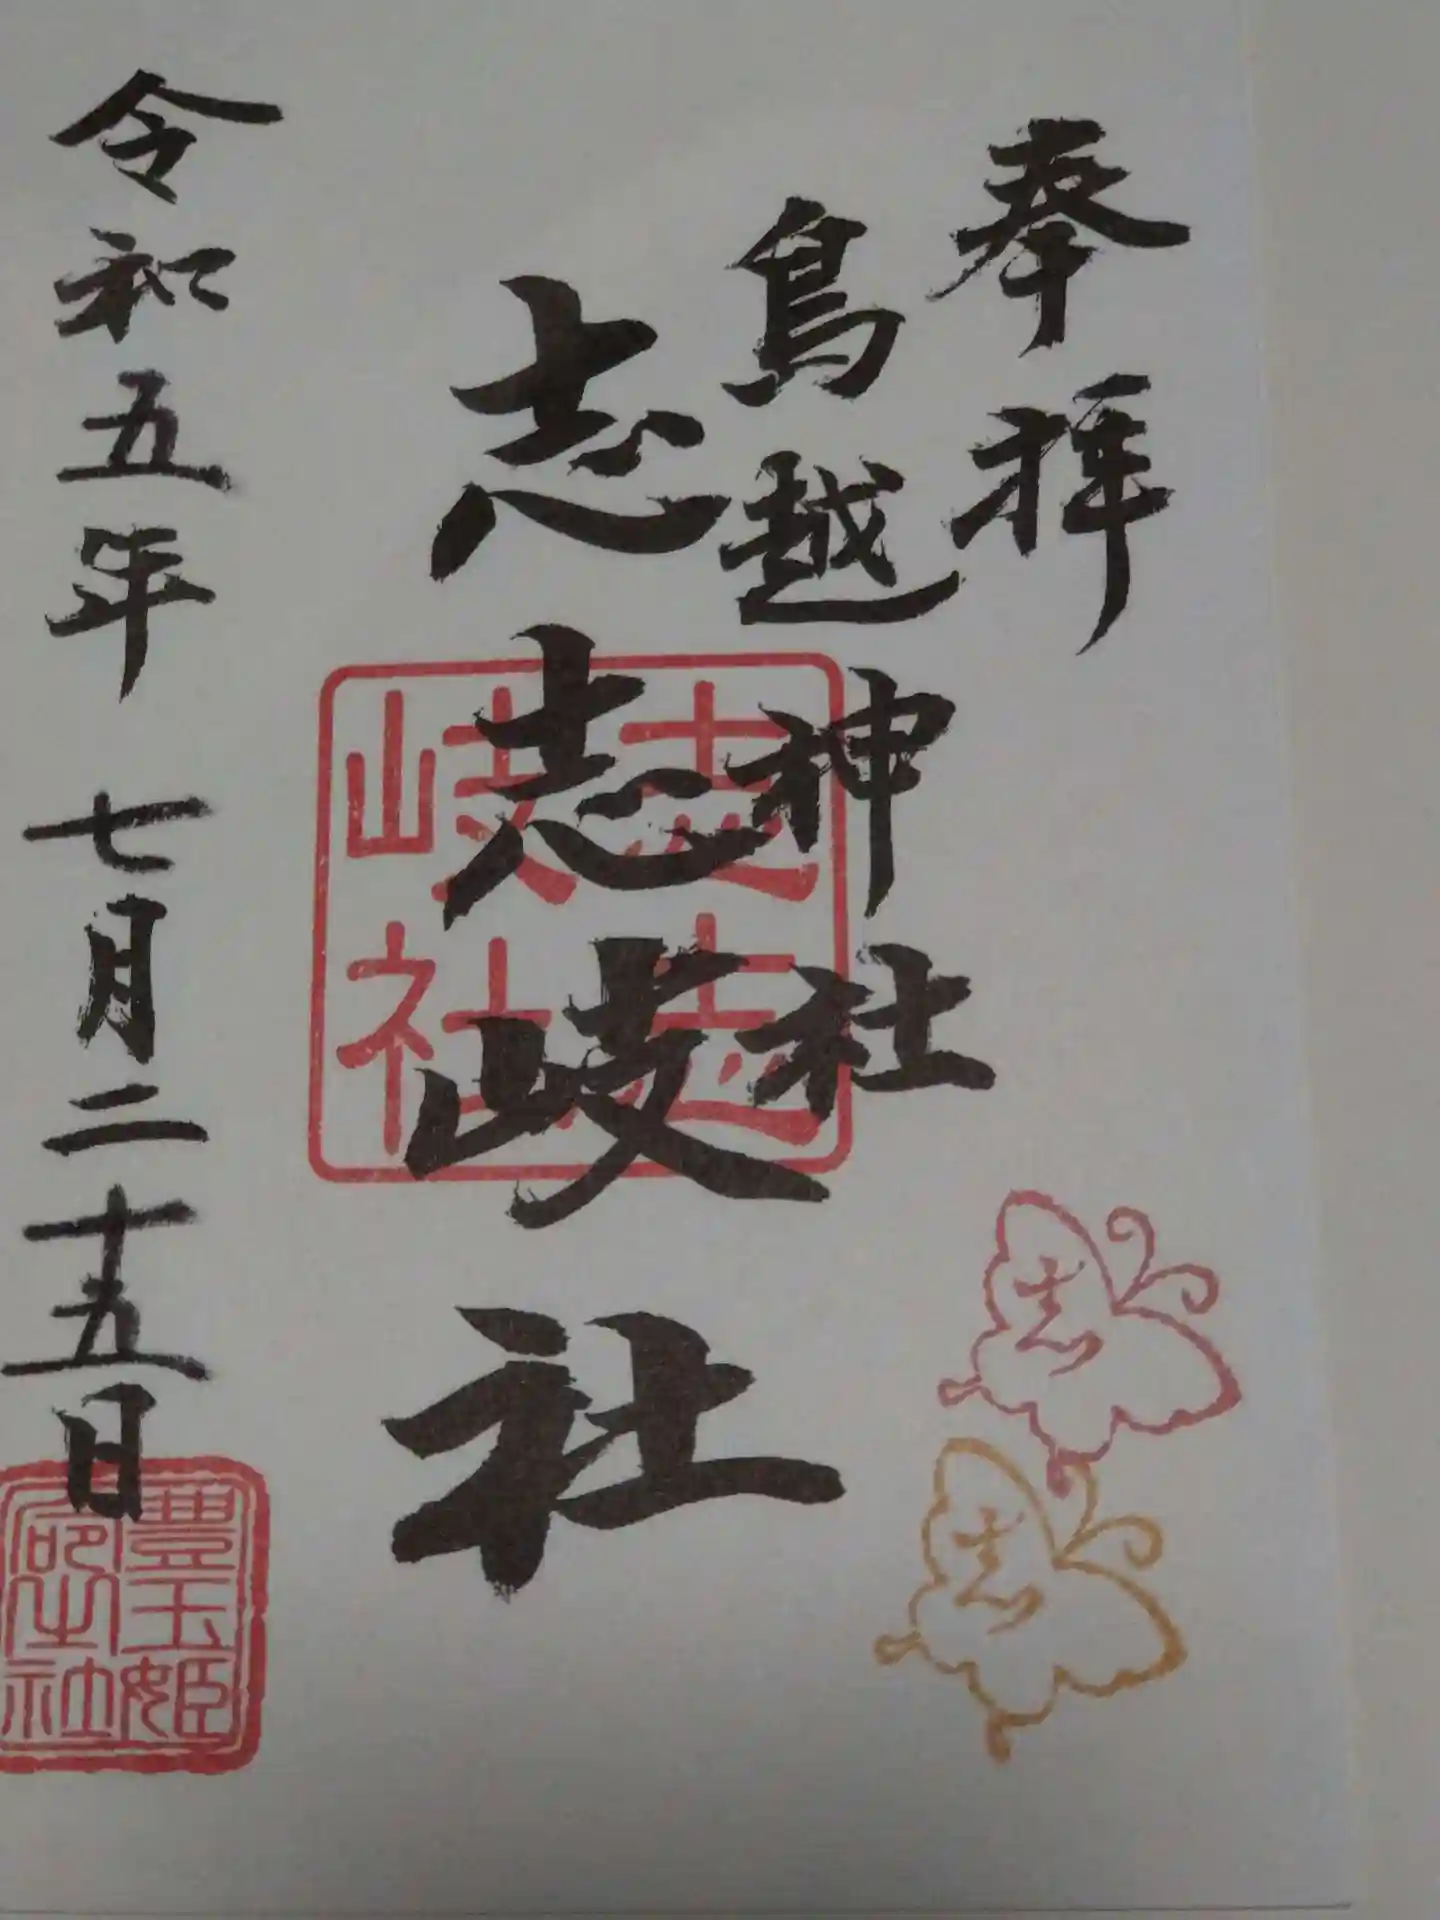 奉拝
鳥越神社
志志岐社
志志
岐社
令和五年 七月二十五日
豊玉姫
志
志